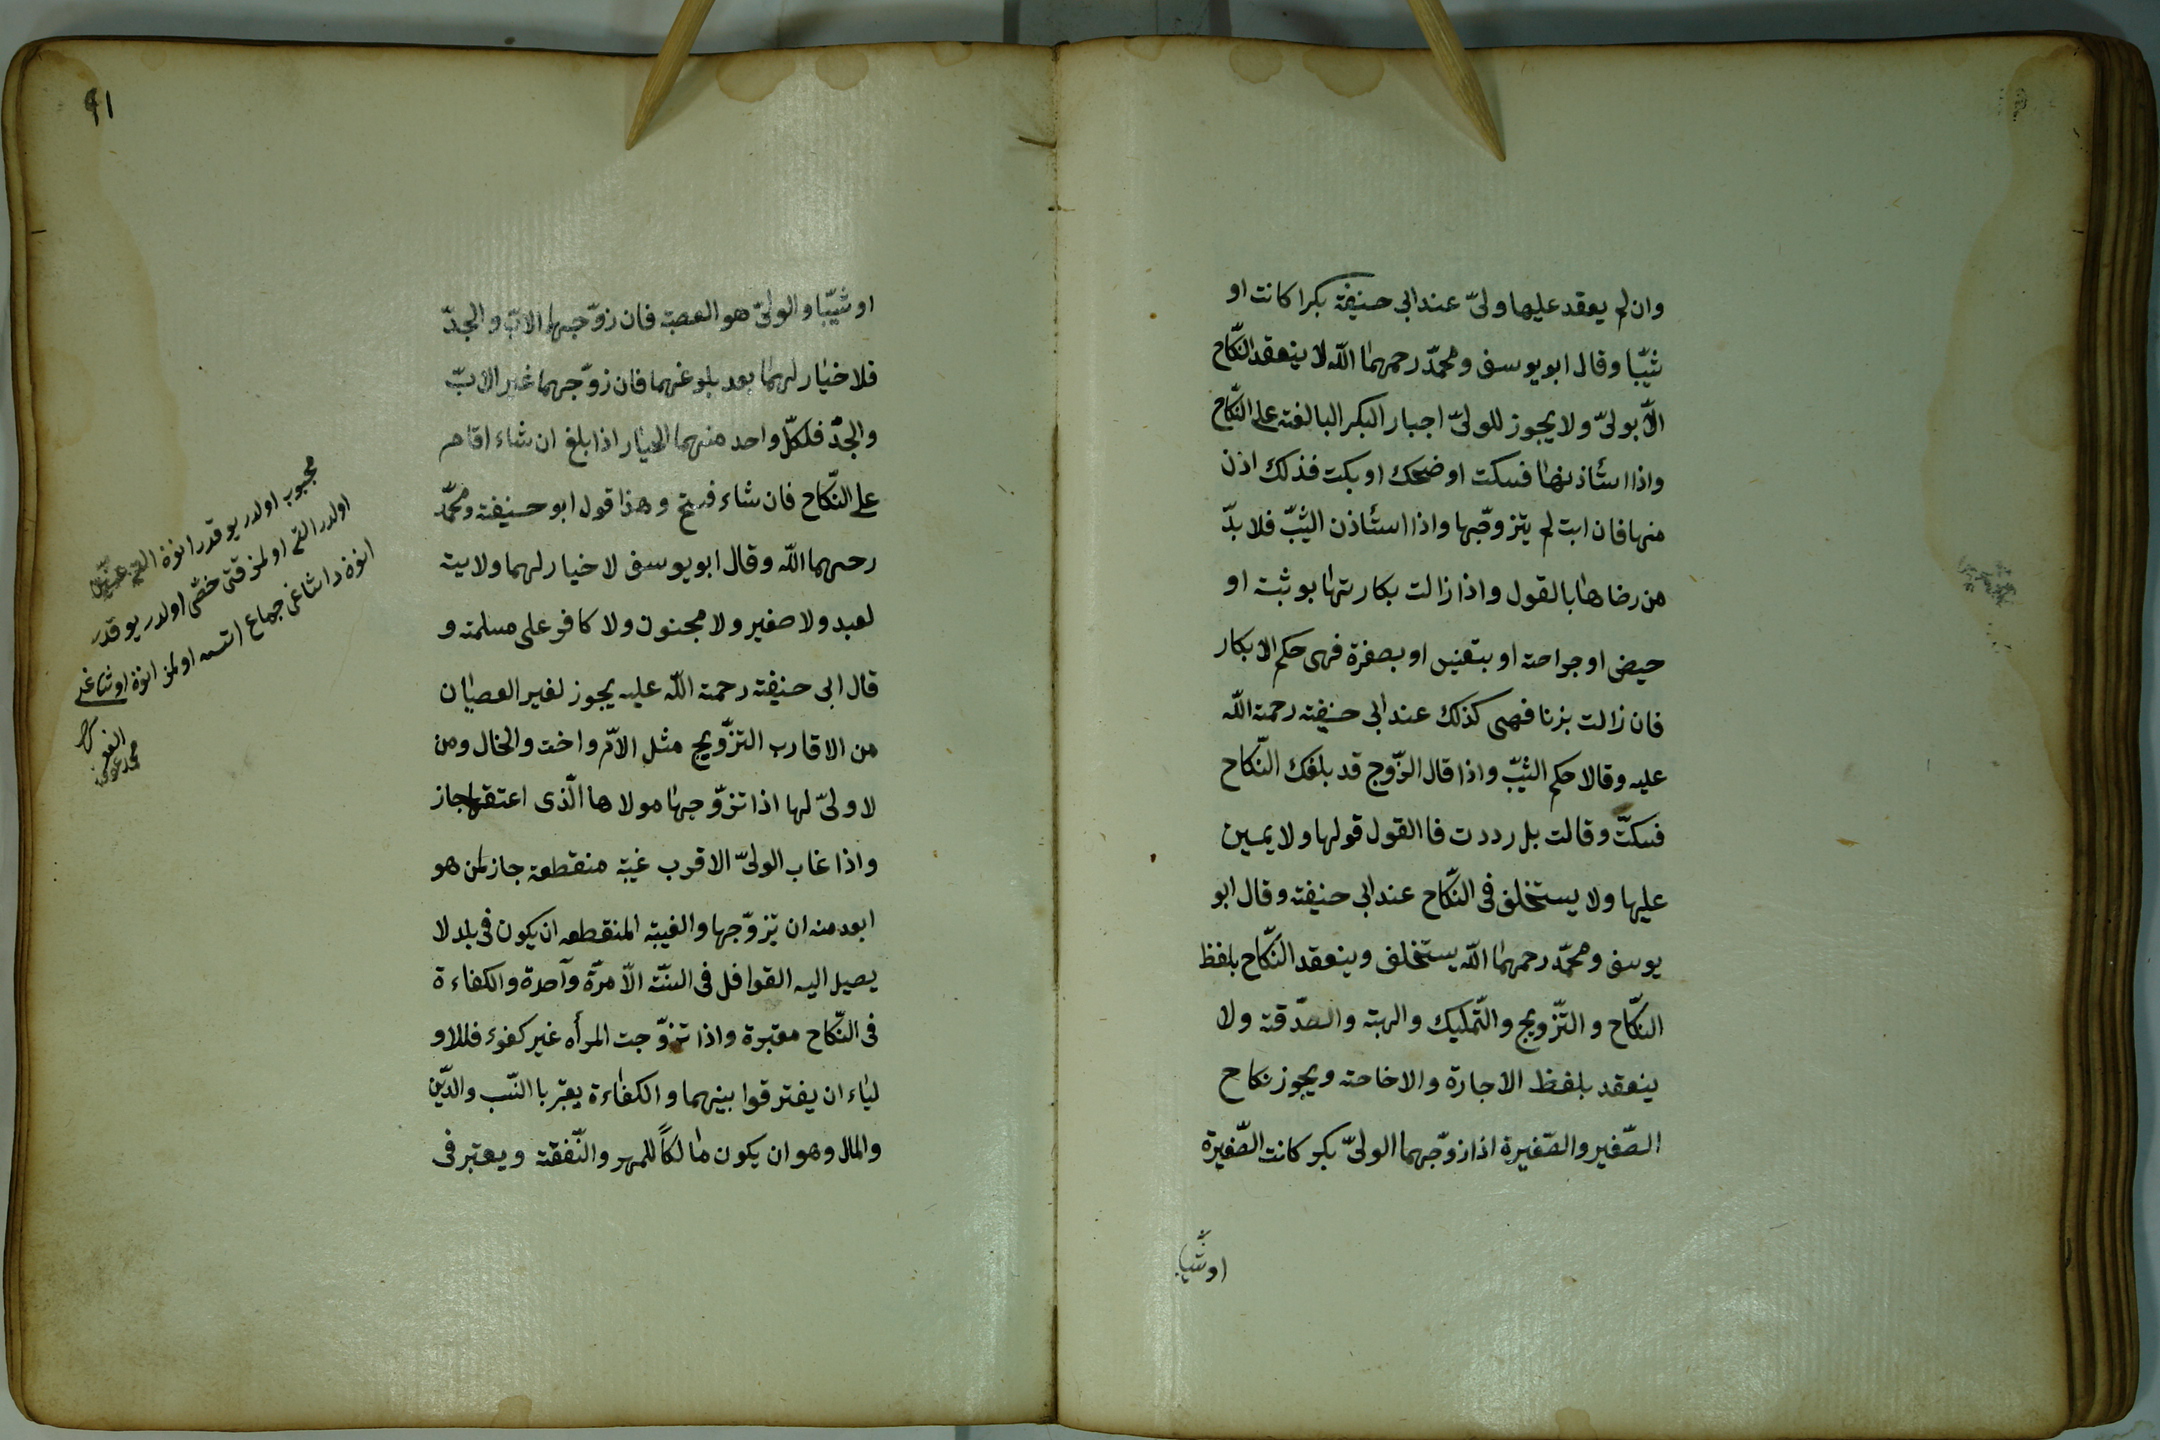 وان لم يعقد عليها ولىّ عند ابى حنيفة بكرا كانت او
ثيّبا وقال ابو يوسف ومحمّد رحمهما اللّه لا ينعقد النّكاح
الّا بولىّ ولا يجوز للولىّ اجبار البكر البالغة على النّكاح
واذا استأذنها فسكت او ضحك او بكت فذلك اذن
منها فان ابت لم يتزوّجها واذا استأذن الثيّب فلا بدّ
من رضاها بالقول واذا زالت بكارتها بوثبة او
حيض او جراحة او بتعنيس او بصفرة فهى حكم الابكار
فان زالت بزنا فهى كذلك عند ابى حنيفة رحمة اللّه
عليه وقالا حكم الثيّب واذا قال الزّوج قد بلغك النّكاح
فسكتّ وقالت بل رددت فا القول قولها ولا يمين
عليها ولا يستخلف فى النّكاح عند ابى حنيفة وقال ابو
يوسف ومحمّد رحمهما اللّه يستخلف وينعقد النّكاح بلفظ
النكّاح و التّزويج والتّمليك والهبة والصّدقة ولا
ينعقد بلفظ الاجارة والاخاحة ويجوز نكاح
الصّغير والصّغيرة اذا زوّجهما الولىّ بكر كانت الصّغيرة
او ثيّبا
٩١
او ثيّبا والولىّ هو العصبة فان زوّجهما الابّ والجدّ
فلا خيار لهما بعد بلوغهما فان زوّجهما غير الابّ
والجدّ فلكلّ واحد منهما الخيار اذا بلغ ان شاء اقام
على النّكاح فان شاء فسخ وهذا قول ابو حنيفة ومحمّد
رحمهما اللّه وقال ابو يوسف لا خيار لهما ولاية
لعبد ولا صغير ولا مجنون ولا كافر على مسلمة و
قال ابى حنيفة رحمة اللّه عليه يجوز لغير العصبان
من الاقارب التزّويج مثل الامّ واخت والخال ومن
لا ولىّ لها اذا تزوّجها مولاها الّذى اعتقها جاز
واذا غاب الولىّ الاقرب غيبة منقطعة جاز لمن هو
ابعد منه ان يزوّجها والغيبة المنقطعه ان يكون فى بلد لا
يصيل اليه القوافل فى السنّة الّا مرّة وآحدة والكفاءة
فى النّكاح معتبرة واذا تزوّجت المرأه غير كفوء فللاو
لياء ان يفترقوا بينهما والكفاءة يعتبر با النّسب والدّين
والمال وهو ان يكون مالكاً للمهر والنّفقة ويعتبر فى
مجبوب اولدر يوقدر انوة التى
اولدر التى اولمز قتى خصّى اولدر يوقدر
انوة داشاغى جماع اتسه اولمز انوة اوشاغد